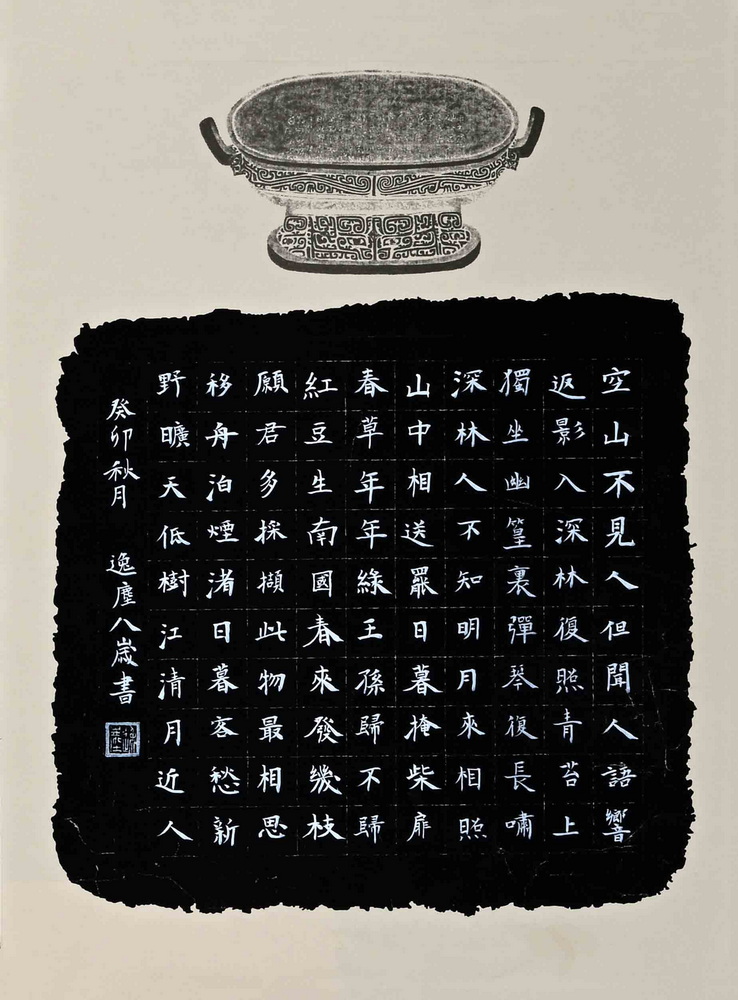 空山不見人但聞人語響
返影入深林復照青苔上
獨坐幽篁裏彈琴復長嘯
深林人不知明月來相照
山中相送罷日暮掩柴扉
春草年年緑王孫歸不歸
紅豆生南國春來發幾枝
願君多採擷此物最相思
移舟泊煙渚日暮客愁新
野曠天低樹江清月近人
癸卯秋月 逸塵八歲書